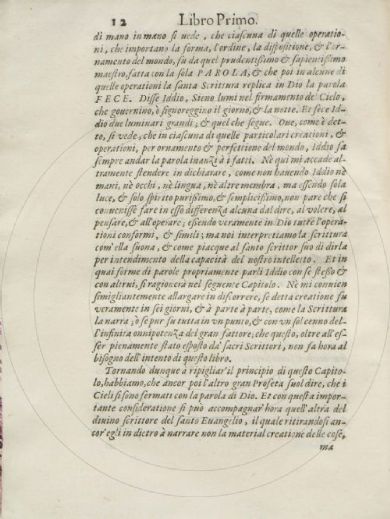 12 Libro Primo.
di mano in mano si vede, che ciascuna di quelle operatio-
ni, che importano la forma, l'ordine, la dispositione, & l'or-
namento del mondo, fu da quel prudentissimo & sapientissimo
maestro, fatta con la sola PAROLA, & che poi in alcune di
quelle operationi la santa Scrittura replica in Dio la parola
FECE. Disse Iddio, Sieno lumi nel firmamento del Cielo,
che gouernino, ò signoreggino il giorno, & la notte. Et fece Id-
dio due luminari grandi, & quel che segue. Oue, come è det-
to, si vede, che in ciascuna di quelle particolari creationi, &
operationi, per ornamento & perfettione del mondo, Iddio fa
sempre andar la parola inanzi à i fatti. Nè qui mi accade al-
tramente stendere in dichiarare, come non hauendo Iddio nè
mani, nè occhi, nè lingua, nè altre membra, ma essendo sola
luce, & solo spirito purissimo, & semplicissimo, non pare che si
conuenisse fare in esso differenza alcuna dal dire, al volere, al
pensare, & all'operare, essendo veramente in Dio tutte l'opera-
tioni conformi, & simili; ma noi interpretiamo la Scrittura
com'ella suona, & come piacque al santo scrittor suo di dirla
per intendimento della capacità del nostro intelletto. Et in
quai forme di parole propriamente parli Iddio con se stesso &
con altrui, si ragionerà nel seguente Capitolo. Nè mi conuien
simigliantemente allargare in discorrere, se detta creatione fu
veramente in sei giorni, & à parte à parte, come la Scrittura
la narra, ò se pur fu tutta in vn punto, & con vn sol cenno del-
l'infinita onnipotenza del gran fattore, che questo, oltre all'es-
ser pienamente stato esposto da' sacri Scrittori, non fa hora al
bisogno dell'intento di questo libro.
Tornando dunque à ripigliar'il principio di questo Capito-
lo, habbiamo, che ancor poi l'altro gran Profeta suol dire, che i
Cieli si sono formati con la parola di Dio. Et con questa impor-
tante consideratione si può accompagnar'hora quell'altra del
diuino scrittore del santo Euangelio, il quale ritirandosi an-
cor'egli in dietro à narrare non la material creatione delle cose,
ma